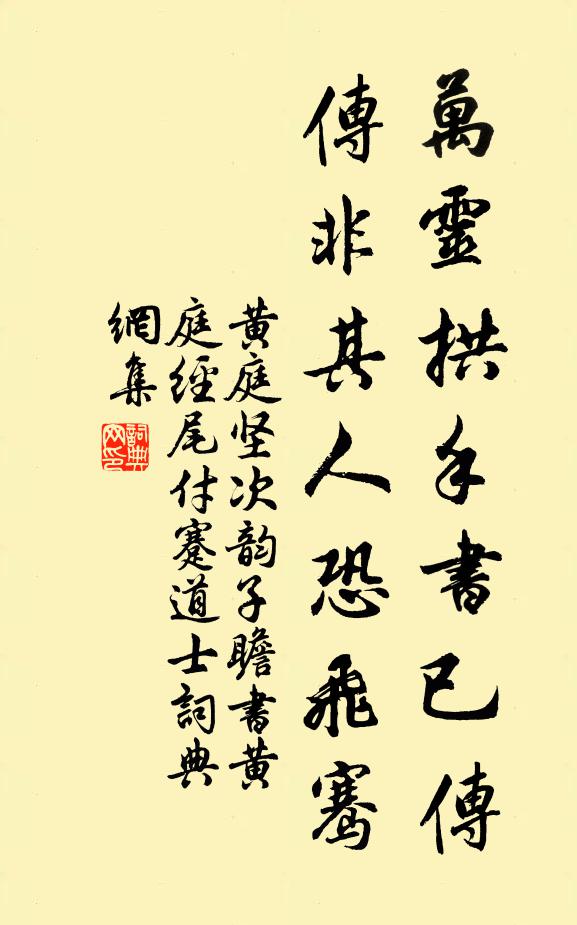 萬靈拱手書已傳
傳非其人恐飛騫
黄庭坚次韵子瞻書黄
庭經尾付蹇道士詞典
網集
詞典
网印